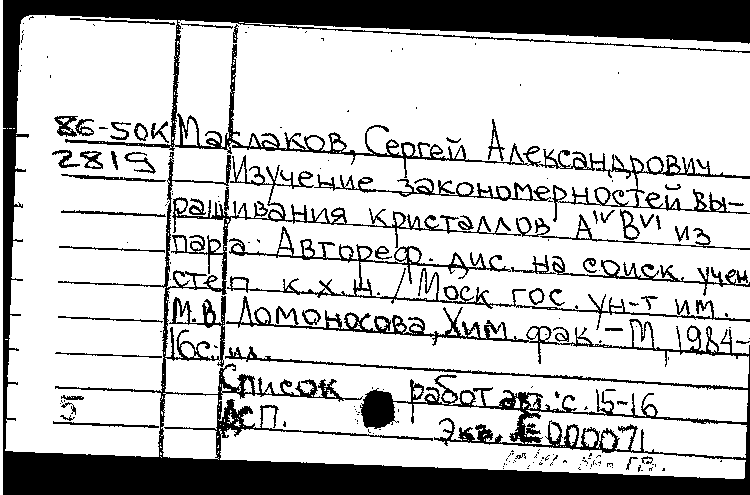 86-50К Маклаков, Сергей Александрович.
2819 Изучение закономерностей вы-
ращивания кристаллов AIVBVI из
пара: Автореф. дис. на соиск. учен.
степ. к.х.н. / Моск гос. ун-т им.
М.В. Ломоносова, Хим. фак. - М, 1984.-
16с. ил.
Список работ авт.: с. 15-16
5 ДСП. Экз. Е000071.